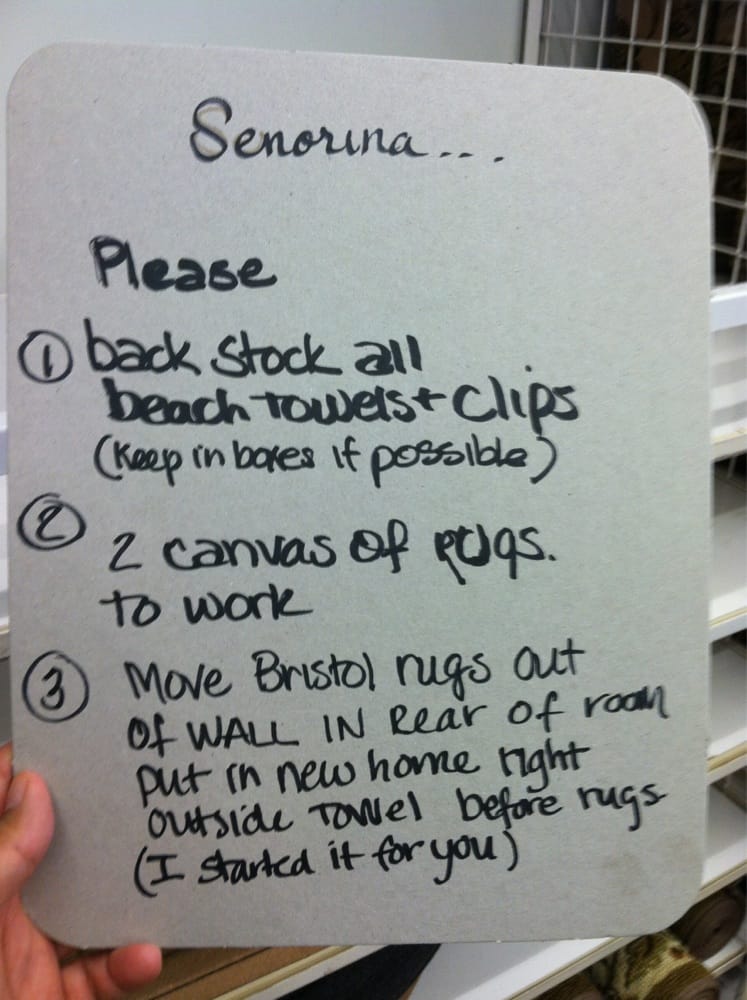 Senorina...
Please
① back stock all
beach towels + clips
(Keep in boxes if possible)
② 2 canvas of rugs.
to work
③ Move Bristol rugs out
of WALL IN Rear of room
put in new home right
outside Towel before rugs
(I started it for you)